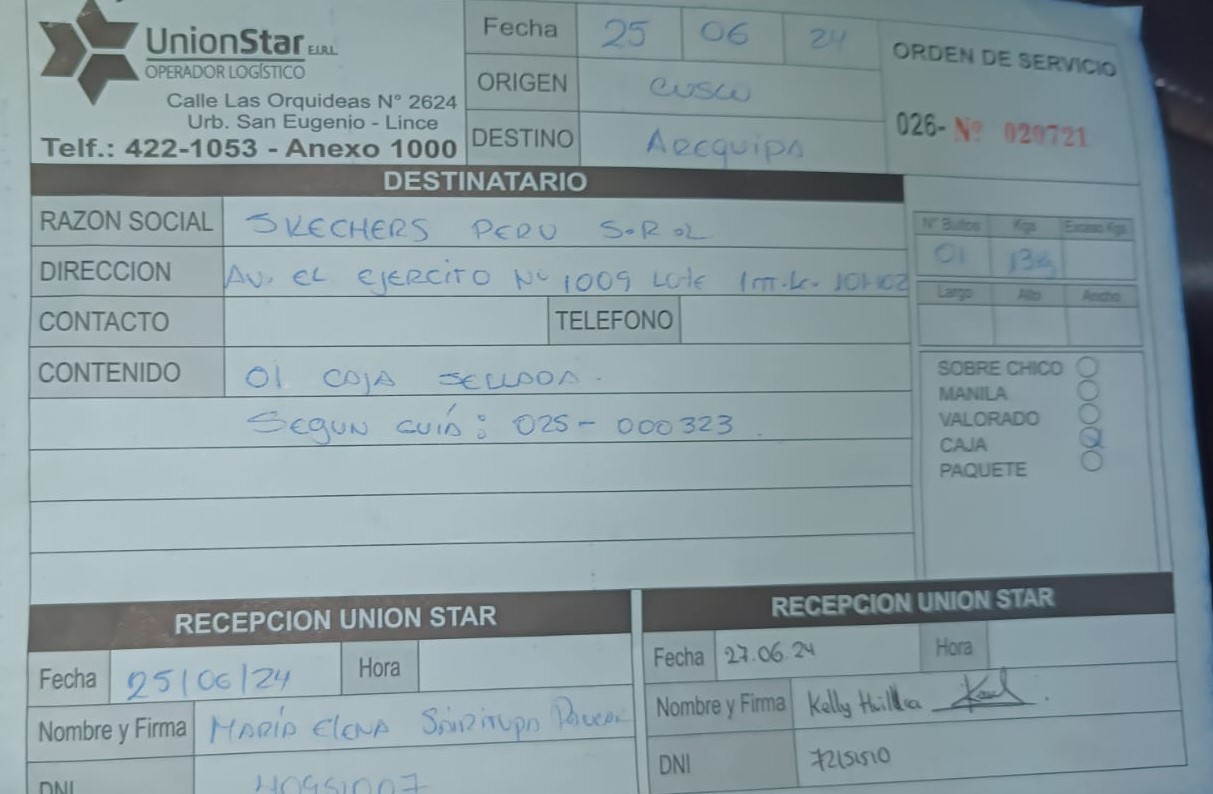 UnionStar E.I.R.L.
OPERADOR LOGÍSTICO
Calle Las Orquideas N° 2624
Urb. San Eugenio - Lince
Telf.: 422-1053 - Anexo 1000
Fecha 25 06 24
ORIGEN CUSCO
DESTINO AREQUIPA
ORDEN DE SERVICIO
026- Nº 020721
DESTINATARIO
RAZON SOCIAL SKECHERS PERU S.R.L
DIRECCION AV. EL EJERCITO Nº 1009 LOTE 101-102
CONTACTO TELEFONO
CONTENIDO 01 CAJA SELLADA.
SEGUN GUÍA: 025- 000323.
N° Bultos Kgs Exceso Kgs
01 13k
Largo Alto Ancho
SOBRE CHICO
MANILA
VALORADO
CAJA
PAQUETE
RECEPCION UNION STAR
Fecha 25/06/24 Hora
Nombre y Firma MARÍA ELENA
DNI
RECEPCION UNION STAR
Fecha 27.06.24 Hora
Nombre y Firma Kelly Huillca
DNI